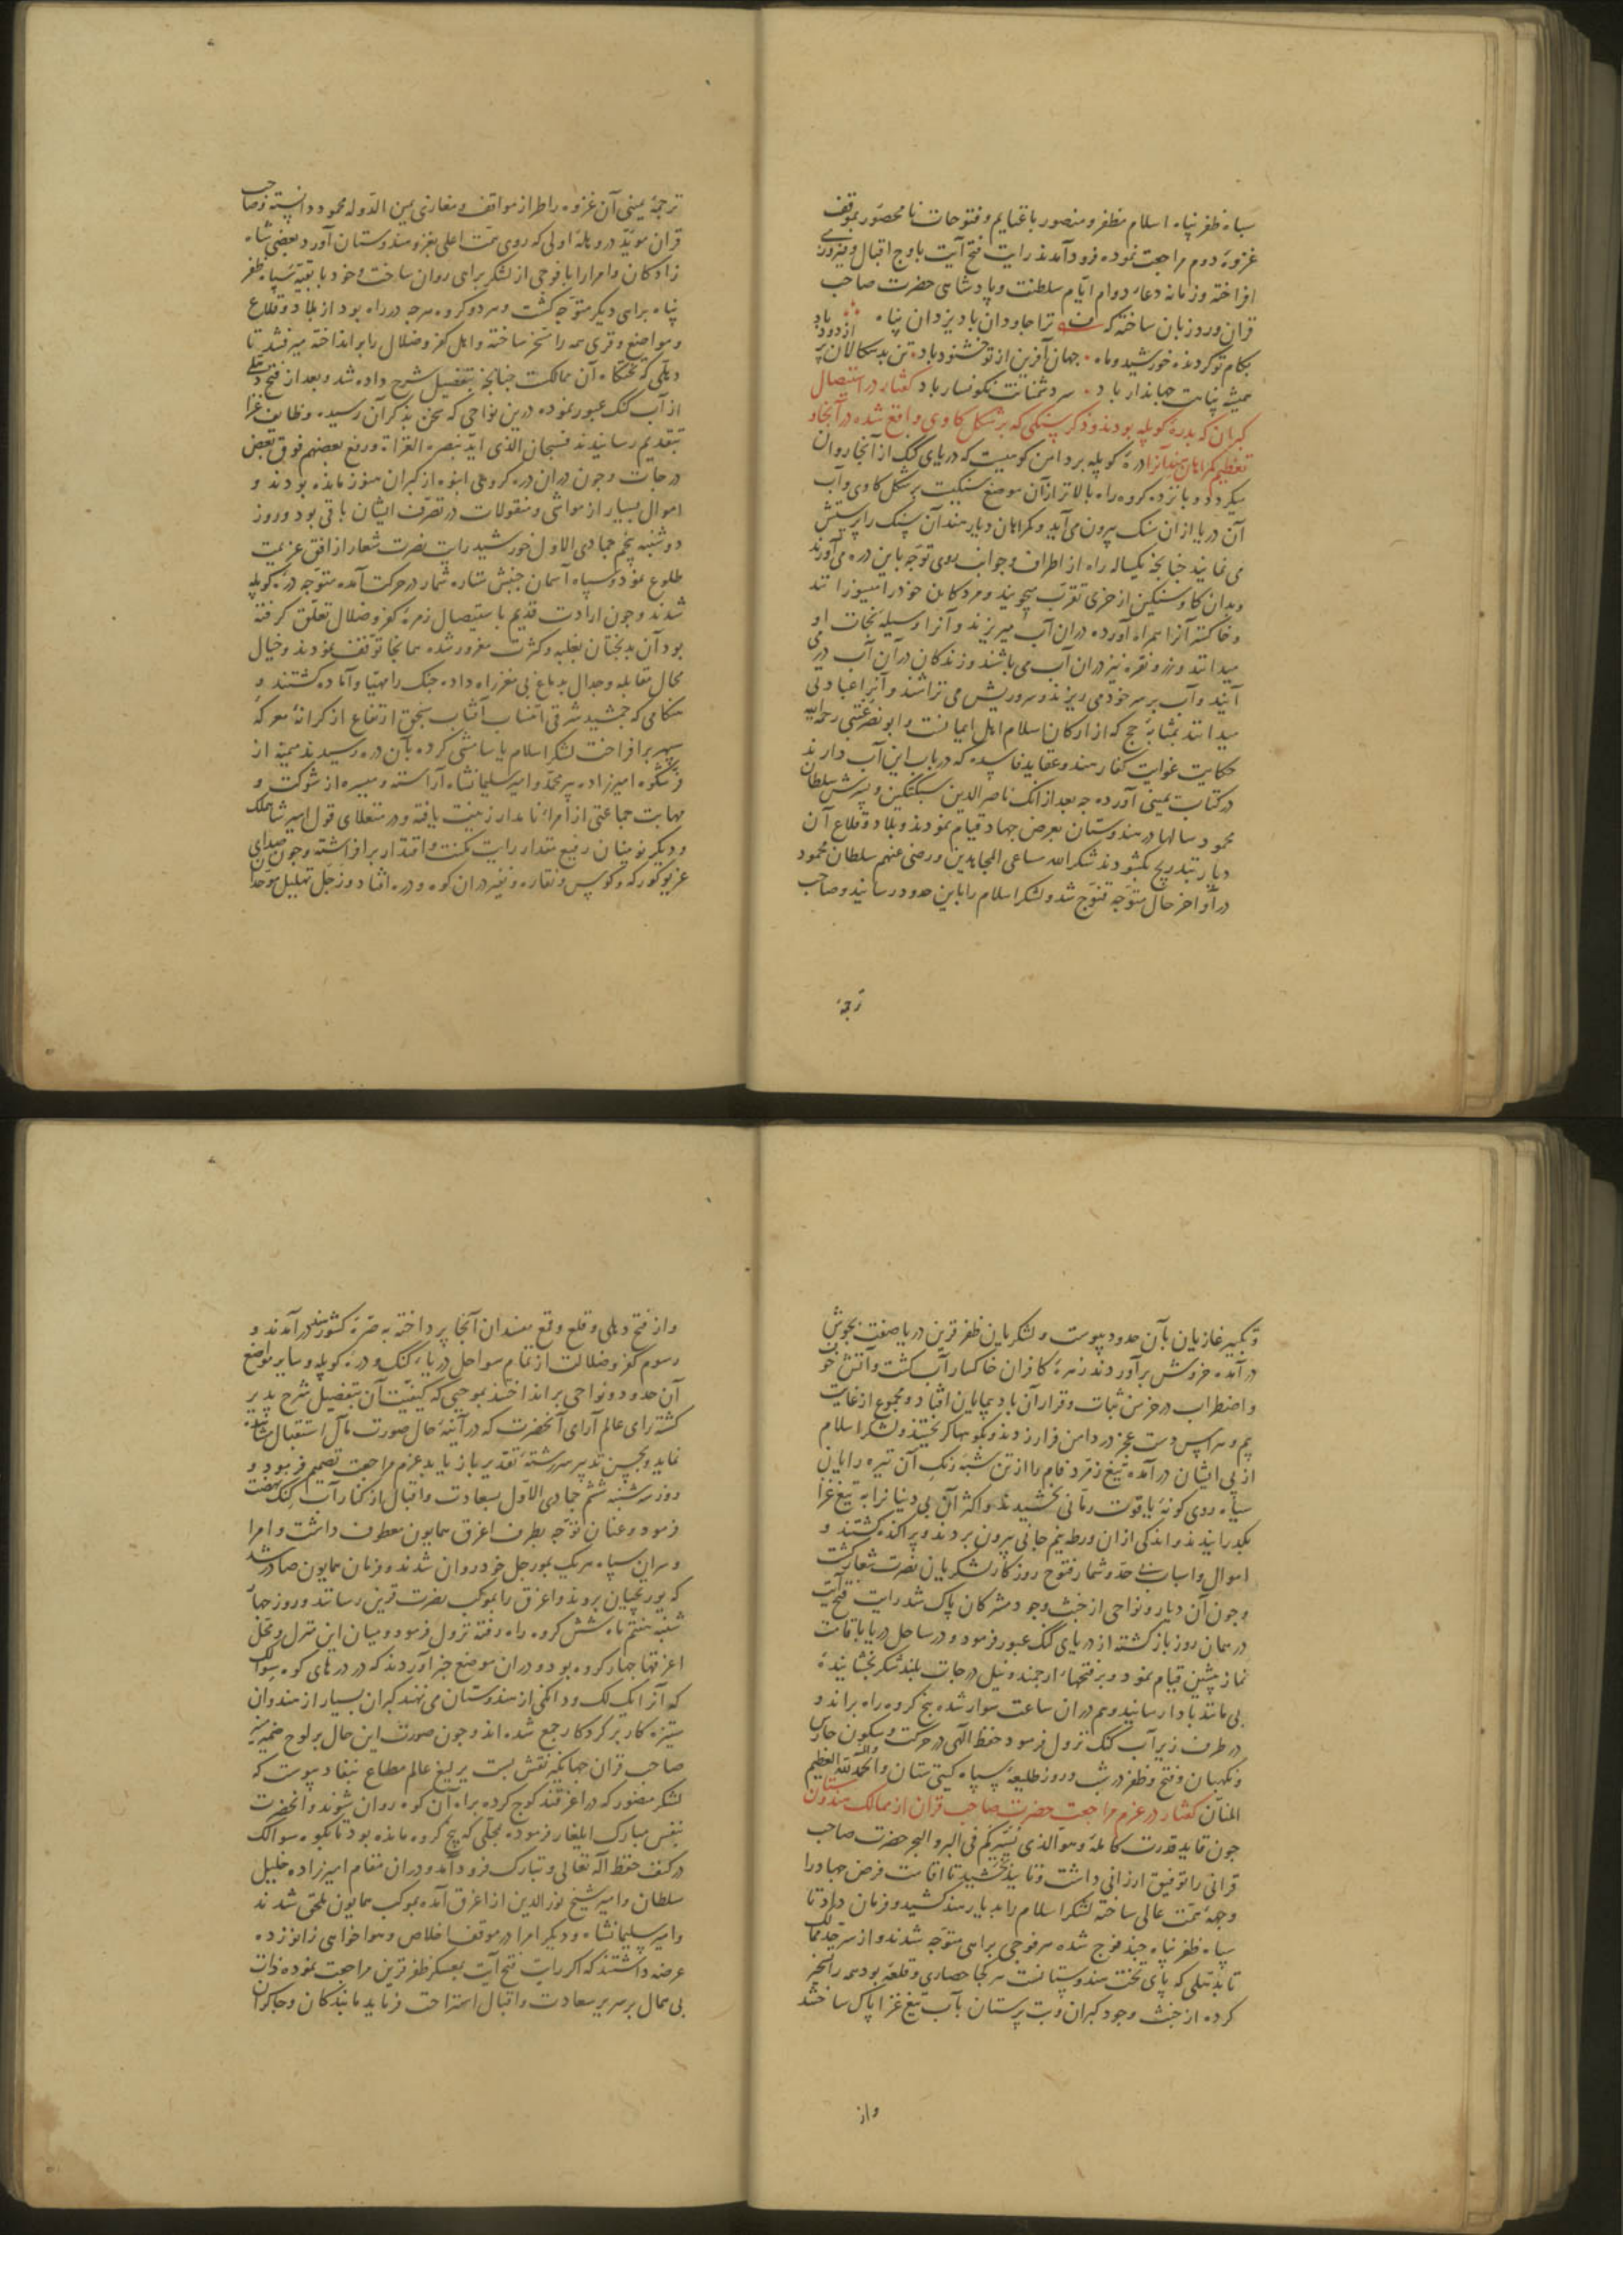 سپاه ظفر پناه اسلام مظفر و منصور با غنایم و فتوحات نامحصور بموقف
غزوهٔ دوم مراجعت نموده فرود آمدند رایت فتح آیت باوج اقبال و فیروزی
افراخته و زمانه دعاء دوام ایام سلطنت و پادشاهی حضرت صاحب
قران ورد زبان ساخته که ترا جاودان باد یزدان پناه
بکام تو کردنده خورشید و ماه جهان آفرین از تو خشنود باد تن بدسکالان پر از دود باد
همیشه پناهت جهاندار باد سر دشمنانت نکونسار باد کفتار در استیصال
کبران که بدرهٔ کوپله بودند و ذکر سنکی که بر شکل کاوی واقع شده در آنجا و
تعظیم کمراهان هند آنرا درهٔ کوپله بر دامن کوهیست که دریای کنک از آنجا روان
میکردد و پانزده کروه راه بالاتر از آن موضع سنکیست بر شکل کاوی و آب
آن دریا از ان سنک بیرون می آید و کمراهان دیار هند آن سنک را پرستش
می نمایند چنانچه یکساله راه از اطراف و جوانب روی توجه باین دره می آورند
و بدان کاو سنکین از خری تقرب میجویند و مردکان خود را میسوزانند
و خاکستر آنرا همراه آورده در ان آب میریزند و آنرا وسیله نجات او
میدانند و زر و نقره نیز در ان آب می باشند و زندکان در آن آب در می
آیند و آب بر سر خود می ریزند و سر و ریش می تراشند و آنرا عبادتی
میدانند بمثابهٔ حج که از ارکان اسلام اهل ایمانست و ابو نصر عتبی رحمه الله
حکایت غوایت کفار هند و عقاید فاسده که در باب این آب دارند
در کتاب یمینی آورده چه بعد از انک ناصر الدین سبکتکین و پسرش سلطان
محمود سالها در هندوستان بعرض جهاد قیام نمودند و بلاد و قلاع آن
دیار بتدریج بکشودند شکر الله مساعی المجاهدین و رضی عنهم سلطان محمود
در آواخر حال متوجه قنوج شد و لشکر اسلام را باین حدود رسانید و صاحب
ترجمهٔ
ترجمهٔ یمینی آن غزوه را طراز مواقف و مغازی یمین الدوله محمود دانسته و صاحب
قران مؤید در وهلهٔ اولی که روی همت اعلی بغزو هندوستان آورد بعضی شاه
زادکان و امرا را با فوجی از لشکر براهی روان ساخت و خود با بقیه سپاه ظفر
پناه براهی دیکر متوجه کشت و هر دو کروه هرچه در راه بود از بلاد و قلاع
و مواضع و قری همه را مسخر ساخته و اهل کفر و ضلال را برانداخته میرفتند تا
دهلی که تختکاه آن ممالکت چنانچه بتفصیل شرح داده شد و بعد از فتح دهلی
از آب کنک عبور نموده درین نواحی که سخن بذکر آن رسیده وظایف غزا
بتقدیم رسانیدند فسبحان الذی اید بنصره الغزاة و رفع بعضهم فوق بعض
درجات و چون در ان دره کروهی انبوه از کبران هنوز مانده بودند و
اموال بسیار از مواشی و منقولات در تصرف ایشان باقی بود و روز
دوشنبه پنجم جمادی الاول خورشید رایت نصرت شعار از افق عزیمت
طلوع نمود و سپاه آسمان جنبش ستاره شمار در حرکت آمده متوجه درهٔ کوپله
شدند و چون ارادت قدیم باستیصال زمرهٔ کفر و ضلال تعلق کرفته
بود آن بدبختان بغلبه و کثرت مغرور شده همانجا توقف نمودند و خیال
محال مقابله و جدال بدماغ بی مغز راه داده جنک را مهیا و آماده کشتند و
هنکامی که جمشید شرقی انتساب آفتاب سنجق ارتفاع از کرانهٔ معرکهٔ
سپهر برافراخت لشکر اسلام یاسامشی کرده بآن دره رسیدند میمنه از
فر شکوه امیرزاده پیر محمد و امیر سلیمانشاه آراسته و میسره از شوکت و
مهابت جماعتی از امراء نامدار زینت یافته و در منقلای قول امیر شاهملک
و دیکر نوینان رفیع مقدار رایت مکنت و اقتدار برافراشته و چون صدای
غریو کورکه و کوس و نقاره و نفیر در ان کوه و دره افتاد و زجل تهلیل موحدان
و تکبیر غازیان بآن حدود پیوست و لشکریان ظفر قرین دریا صفت بجوش
در آمده خروش برآوردند زهرهٔ کافران خاکسار آب کشت و آتش خوف
و اضطراب در خرمن ثبات و قرار آن باد پیمایان افتاد و مجموع از غایت
بیم و هراس دست عجز در دامن فرار زدند و بکوهها کریختند و لشکر اسلام
از پی ایشان درآمده تیغ زمرد فام را از تن شبه رنک آن تیره رایان
سیاه روی کونهٔ یاقوت رمانی بخشیدند و اکثر آن بی دینانرا به تیغ غزا
بکذرانیدند و اندکی از ان ورطه نیم جانی بیرون بردند و پراکنده کشتند و
اموال و اسباب بی حد و شمار فتوح روزکار لشکریان نصرت شعار کشت
و چون آن دیار و نواحی از خبث وجود مشرکان پاک شد رایت فتح آیت
در همان روز بازکشته از دریای کنک عبور فرمود و در ساحل دریا باقامت
نماز پیشین قیام نمود و بر فتحهاء ارجمند و نیل درجات بلند شکر بخشایندهٔ
بی مانند بادا رسانید و هم در ان ساعت سوار شده پنج کروه راه براند و
در طرف زیر آب کنک نزول فرمود حفظ الهی در حرکت و سکون حارس
و نکهبان و فتح و ظفر در شب و روز طلیعهٔ سپاه کیتی ستان و الحمد لله العظیم
المنان کفتار در عزم مراجعت حضرت صاحب قران از ممالک هندوستان
چون قاید قدرت کامله و هو الذی یسیرکم فی البر و البحر حضرت صاحب
قرانی را توفیق ارزانی داشت و تایید بخشید تا اقامت فرض جهاد را
وجههٔ همت عالی ساخته لشکر اسلام را بدیار هند کشید و فرمان داد تا
سپاه ظفر پناه چند فوج شده هر فوجی براهی متوجه شدند و از سرحد ممالک
تا بدهلی که پای تخت هندوستانست هر کجا حصاری و قلعهٔ بود همه را مسخر
کرده از خبث وجود کبران و بت پرستان بآب تیغ غزا پاک ساختند
و از
و از فتح دهلی و قلع و قمع مفسدان آنجا پرداخته به صرهٔ کشور هند درآمدند و
رسوم کفر و ضلالت از تمام سواحل دریاء کنک و درهٔ کوپله و سایر مواضع
آن حدود و نواحی برانداختند بموجبی که کیفیت آن بتفصیل شرح پذیر
کشته رای عالم آرای آنحضرت که در آینهٔ حال صورت مآل استقبال مشاهده
نماید و بحسن تدبیر سررشتهٔ تقدیر باز یابد عزم مراجعت تصمیم فرمود و
روز سه شنبه ششم جمادی الاول بسعادت و اقبال از کنار آب کنک نهضت
فرمود و عنان توجه بطرف اغرق همایون معطوف داشت و امرا
و سران سپاه هر یک بمورجل خود روان شدند و فرمان همایون صادر شد
که یورتچیان بروند و اغرق را بموکب نصرت قرین رسانند و روز چهار
شنبه هفتم ماه شش کروه راه رفته نزول فرمود و میان این منزل و محل
اغرقها چهار کروه بود و در ان موضع خبر آوردند که در درهای کوه سوالک
که آنرا یک لک و دانکی از هندوستان می نهند کبران بسیار از هندوان
ستیزه کار بر کرد کا رجمع شده اند و چون صورت این حال بر لوح ضمیر
صاحب قران جهانکیر نقش بست یرلیغ عالم مطاع بنفاذ پیوست که
لشکر منصور که در اغرقند کوچ کرده براه آن کوه روان شوند و آنحضرت
بنفس مبارک ایلغار فرموده بمحلی که پنج کروه مانده بود تا بکوه سوالک
در کنف حفظ اله تعالی و تبارک فرود آمد و در ان مقام امیرزاده خلیل
سلطان و امیر شیخ نور الدین از اغرق آمده بموکب همایون ملحق شدند
و امیر سلیمانشاه و دیکر امرا در موقف اخلاص و هواخواهی زانو زده
عرضه داشتند که اکر رایت فتح آیت بمعسکر ظفر قرین مراجعت نموده ذات
بی همال بر سریر سعادت و اقبال استراحت فرماید ما بندکان و چاکران